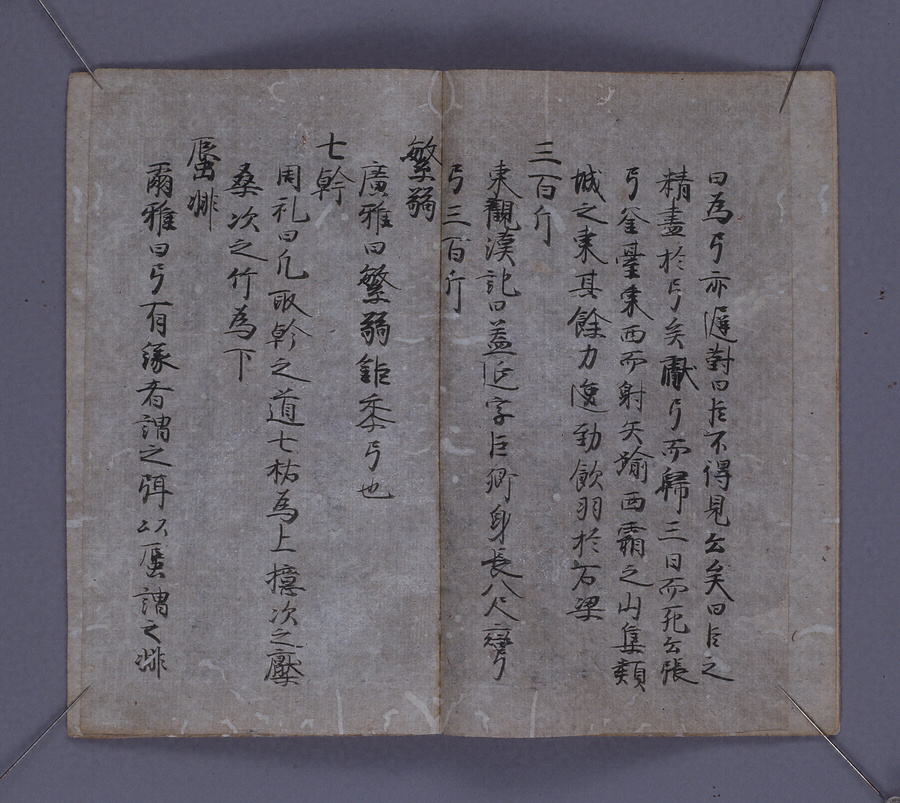 曰為弓亦遲對曰臣不得見公矣曰臣之
精盡於弓矣獻弓而歸三日而死公張
弓登臺東西而射矢踰西霜之山集類
城之東其餘力復勁飲羽於石梁
三百斤
東觀漢記曰盖延字臣卿身長八尺彎
弓三百斤
繁弱
廣雅曰繁弱鉅黍弓也
七幹
周礼曰凡取幹之道七柘為上檍次之檿
桑次之竹為下
蜃㷅
爾雅曰弓有緣者謂之弭以蜃謂之